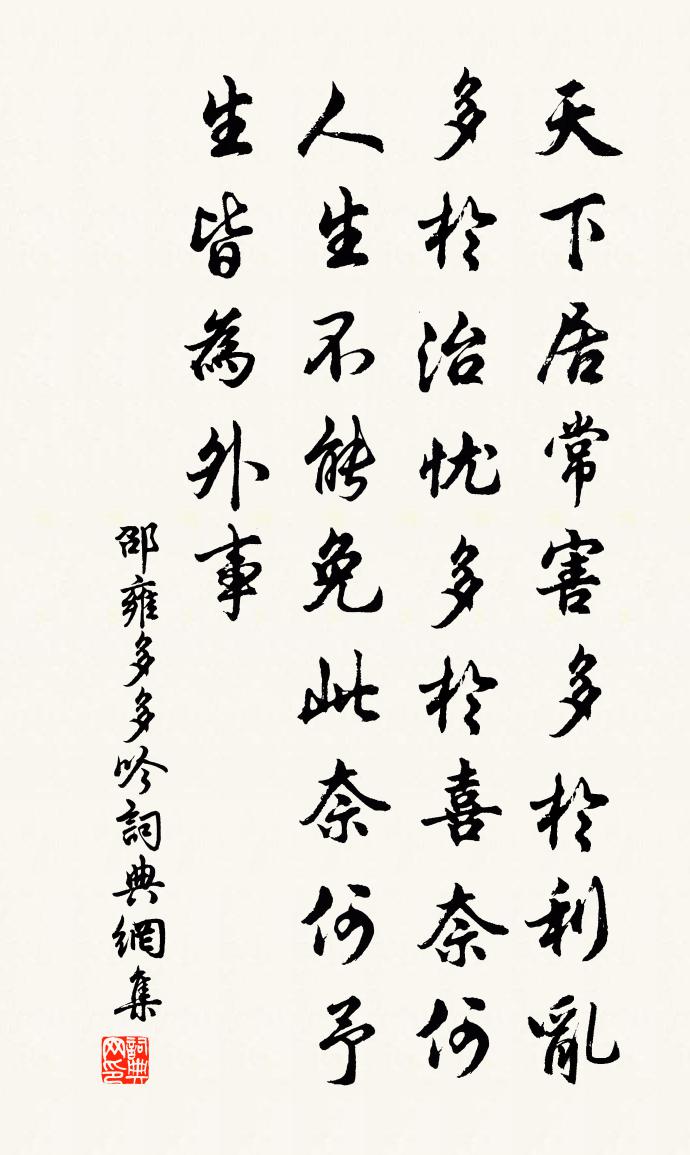 天下居常害多於利亂
多於治忧多於喜奈何
人生不能免此奈何予
生皆為外事
邵雍多多吟詞典網集
詞典网印